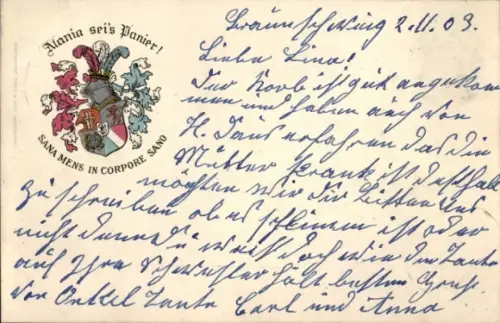 Alania sei's Panier!
SANA MENS IN CORPORE SANO
Braunschweig 2.11.03.
Liebe Lina!
Der Korb ist gut angekom
men und haben auch von
H. erfahren das die
Mutter krank ist deshalb
möchten wir dir bitten uns
zu schreiben ob es schlimm ist oder
nicht denn u weist doch wie den Tante
auf Ihre Schwester hält besten Gruß
von Onkel Tante Carl und Anna